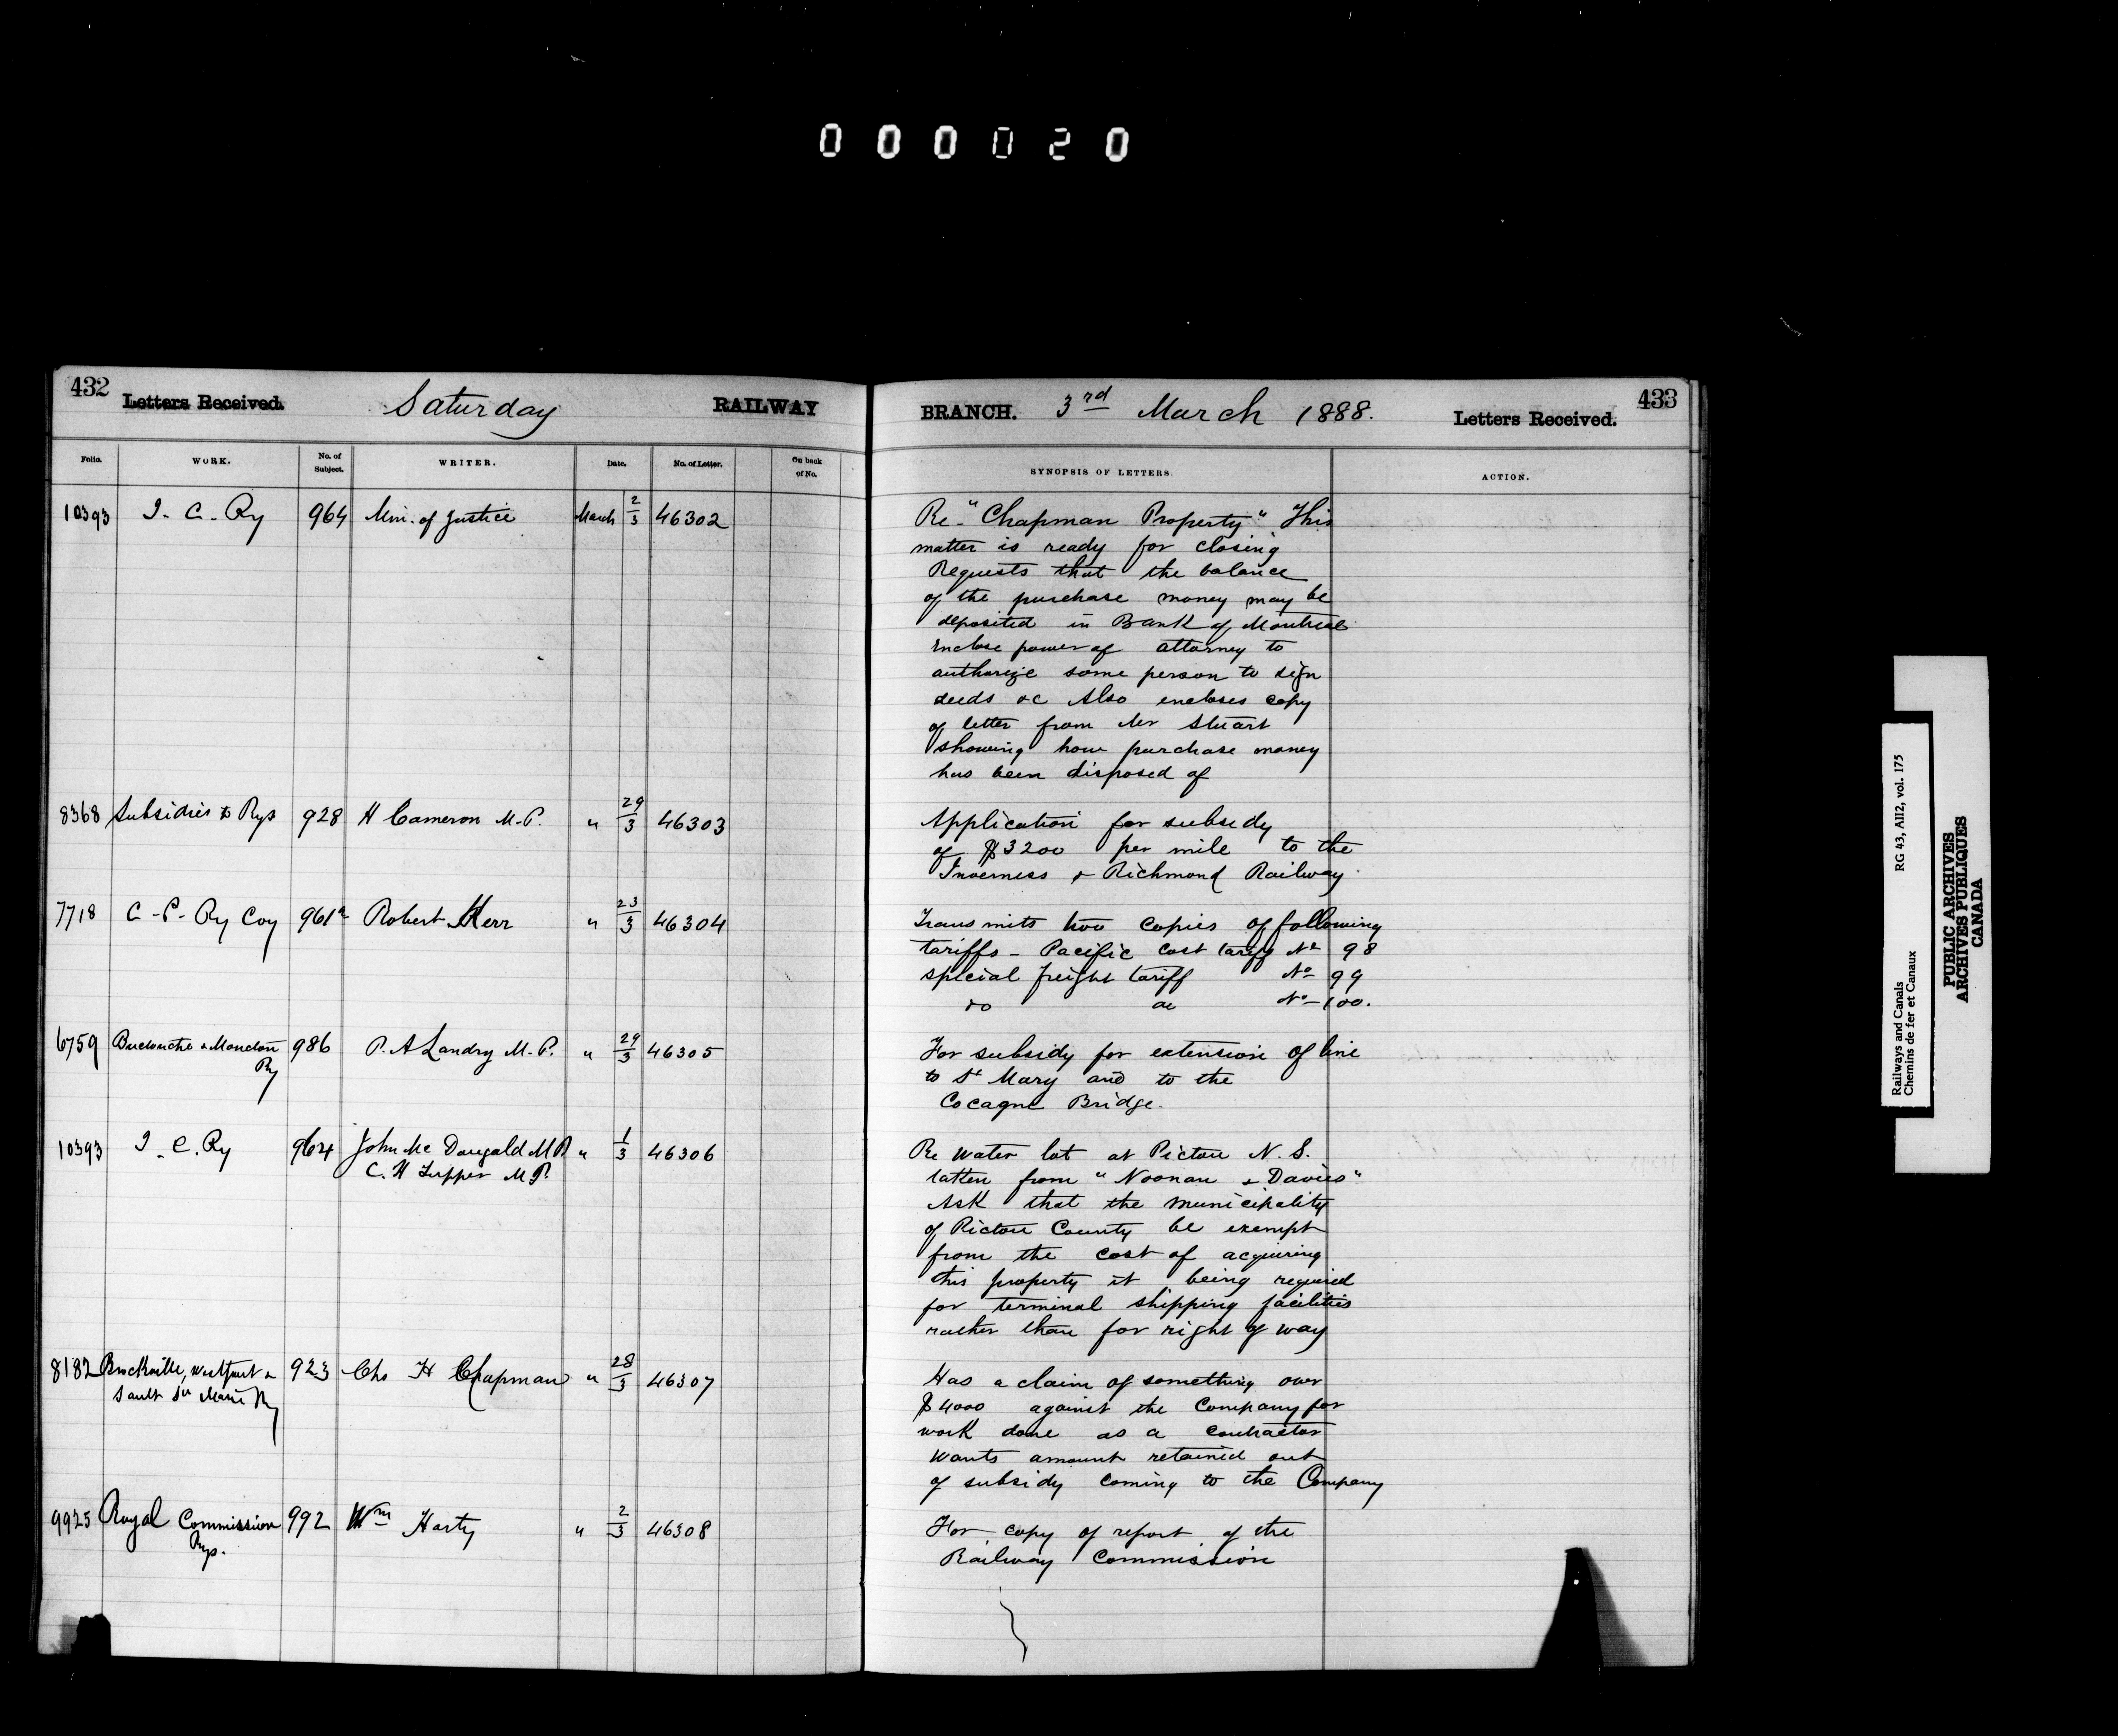 000020
432 Letters Received. Saturday RAILWAY
Folio. WORK. No. of Subject. WRITER. Date. No. of Letter. On back of No.
10393 I. C. Ry 964 Min. of Justice March 2/3 46302
8368 Subsidies to Rys 928 H Cameron M.P. " 29/3 46303
7718 C. P. Ry Coy 961a Robert Kerr " 23/3 46304
6759 Buctouche & Moncton 986 P. A Landry M.P. " 29/3 46305
Ry
10393 I. C. Ry 964 John Mc Dougald M P " 1/3 46306
C. H Tupper M P.
8182 Brockville, Westport & 923 Chs H Chapman " 28/3 46307
Sault Ste Marie Ry
9925 Royal Commission 992 Wm Harty " 2/3 46308
Rys.
BRANCH. 3rd March 1888. Letters Received. 433
SYNOPSIS OF LETTERS. ACTION.
Re "Chapman Property" This
matter is ready for closing
Requests that the balance
of the purchase money may be
deposited in Bank of Montreal
inclose power of attorney to
authorize some person to sign
deeds &c Also encloses copy
of letter from Mr Stuart
showing how purchase money
has been disposed of
Application for subsidy
of $3200 per mile to the
Inverness & Richmond Railway
Transmits two copies of following
tariffs - Pacific Cost tariff No 98
special freight tariff No 99
do do No 100.
For subsidy for extension of line
to St Mary and to the
Cocagne Bridge.
Re water lot at Pictou N. S.
taken from "Noonan & Davies"
Ask that the municipality
of Pictou County be exempt
from the cost of acquiring
this property it being required
for terminal shipping facilities
rather than for right of way
Has a claim of something over
$4000 against the Company for
work done as a contractor
wants amount retained out
of subsidy coming to the Company
For copy of report of the
Railway Commission
Railways and Canals RG 43, AII2, vol. 175
Chemins de fer et Canaux
PUBLIC ARCHIVES
ARCHIVES PUBLIQUES
CANADA